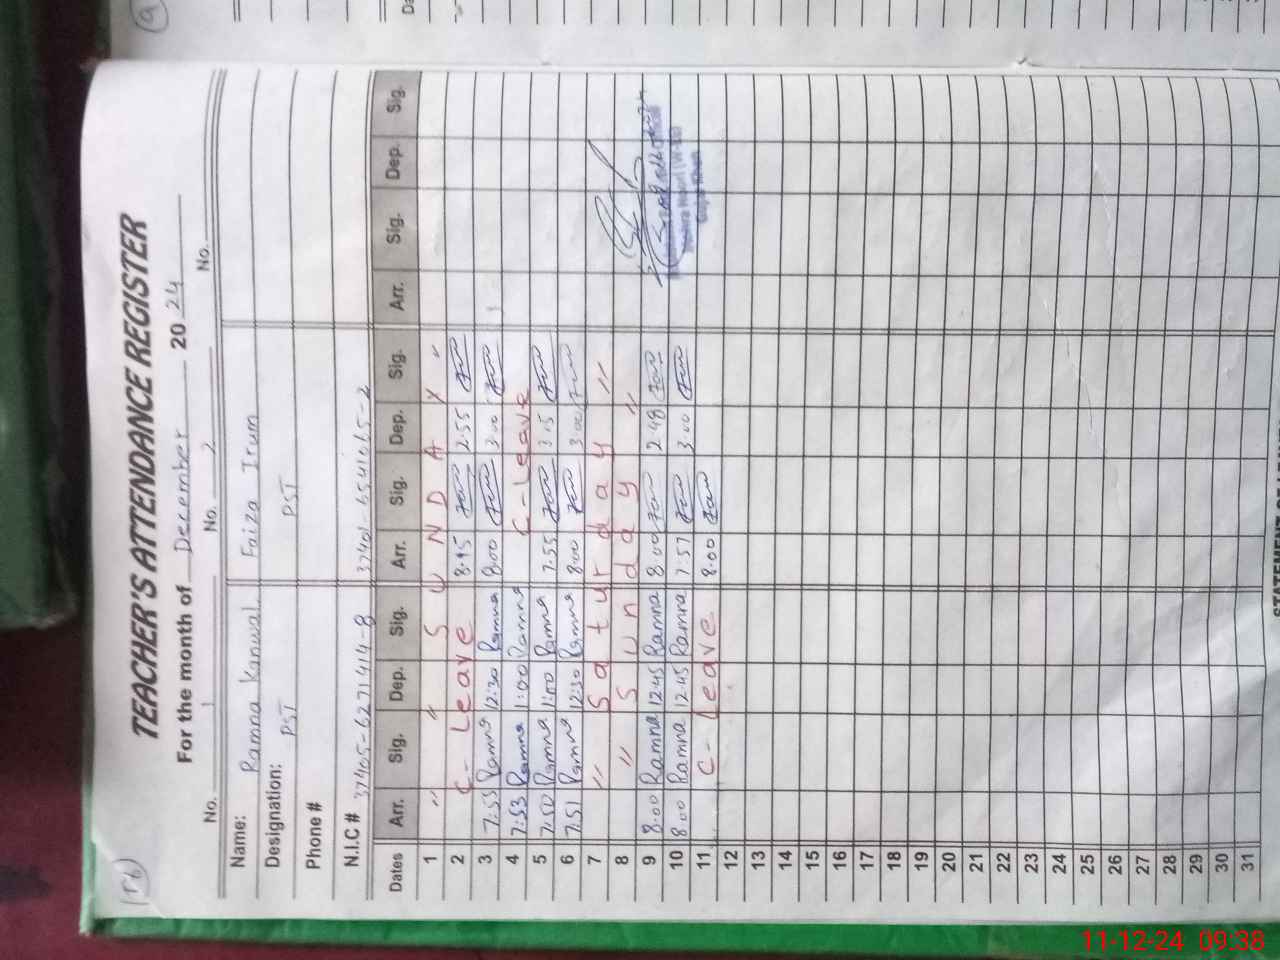 TEACHER'S ATTENDANCE REGISTER
For the month of December 2024
No. 1 No. 2 No.
Name: Ramna Kanwal. Faiza Irum
Designation: PST PST
Phone #
N.I.C # 37405-6271414-8
Dates Arr. Sig. Dep. Sig. Arr. Sig. Dep. Sig. Arr. Sig. Dep. Sig.
1 " " S U N D A Y "
2 C- Leave 8:15 2.55
3 7:55 Ramna 12:30 Ramna 8:00 3.00
4 7:53 Ramna 1:00 Ramna C-Leave
5 7:50 Ramna 1:00 Ramna 7.55 3.15
6 7.51 Ramna 12:30 Ramna 8:00 3.00
7 " S a t u r d a y "
8 " S u n d a y "
9 8:00 Ramna 12:45 Ramna 8:00 2.48
10 8:00 Ramna 12:45 Ramna 7:57 3.00
11 C- Leave 8:00
12
13
14
15
16
17
18
19
20
21
22
23
24
25
26
27
28
29
30
31
11-12-24 09:38